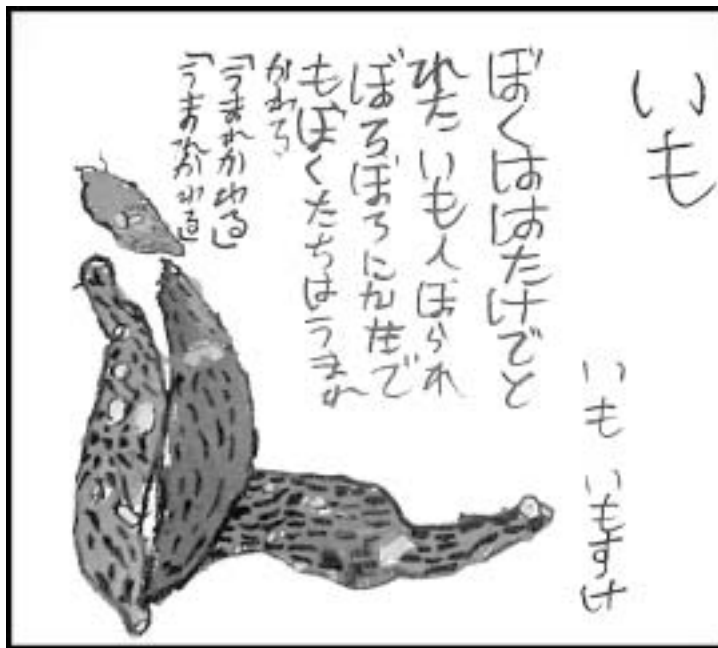 いも
いも いもすけ
ぼくははたけでと
れたいも人ぼられ
ぼろぼろになって
もぼくたちはうまれ
かわる
「うまれかわる」
「うまれかわる」